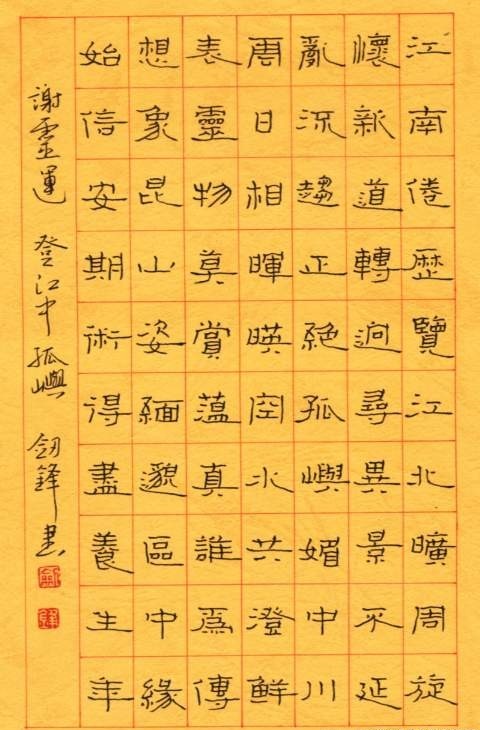 江南倦歷覽江北曠周旋
懷新道轉迥尋異景不延
亂流趨正絕孤嶼媚中川
雲日相暉暎空水共澄鮮
表靈物莫賞薀真誰爲傳
想象昆山姿緬邈區中緣
始信安期術得盡養生年
謝靈運 登江中孤嶼 釼鋒書